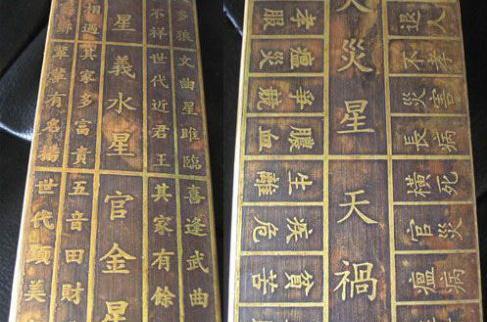 多狼
文曲星雖臨
喜逢武曲
不祥
世代近君王
其家有餘
星
義水星
官金星
相過
其家多富貴
五音田財
有名揚
世代顯美
退人
不孝
災害
長病
橫死
官災
瘟病
災星
天禍
孝服
爭競
膿血
生離
淚危
貧苦